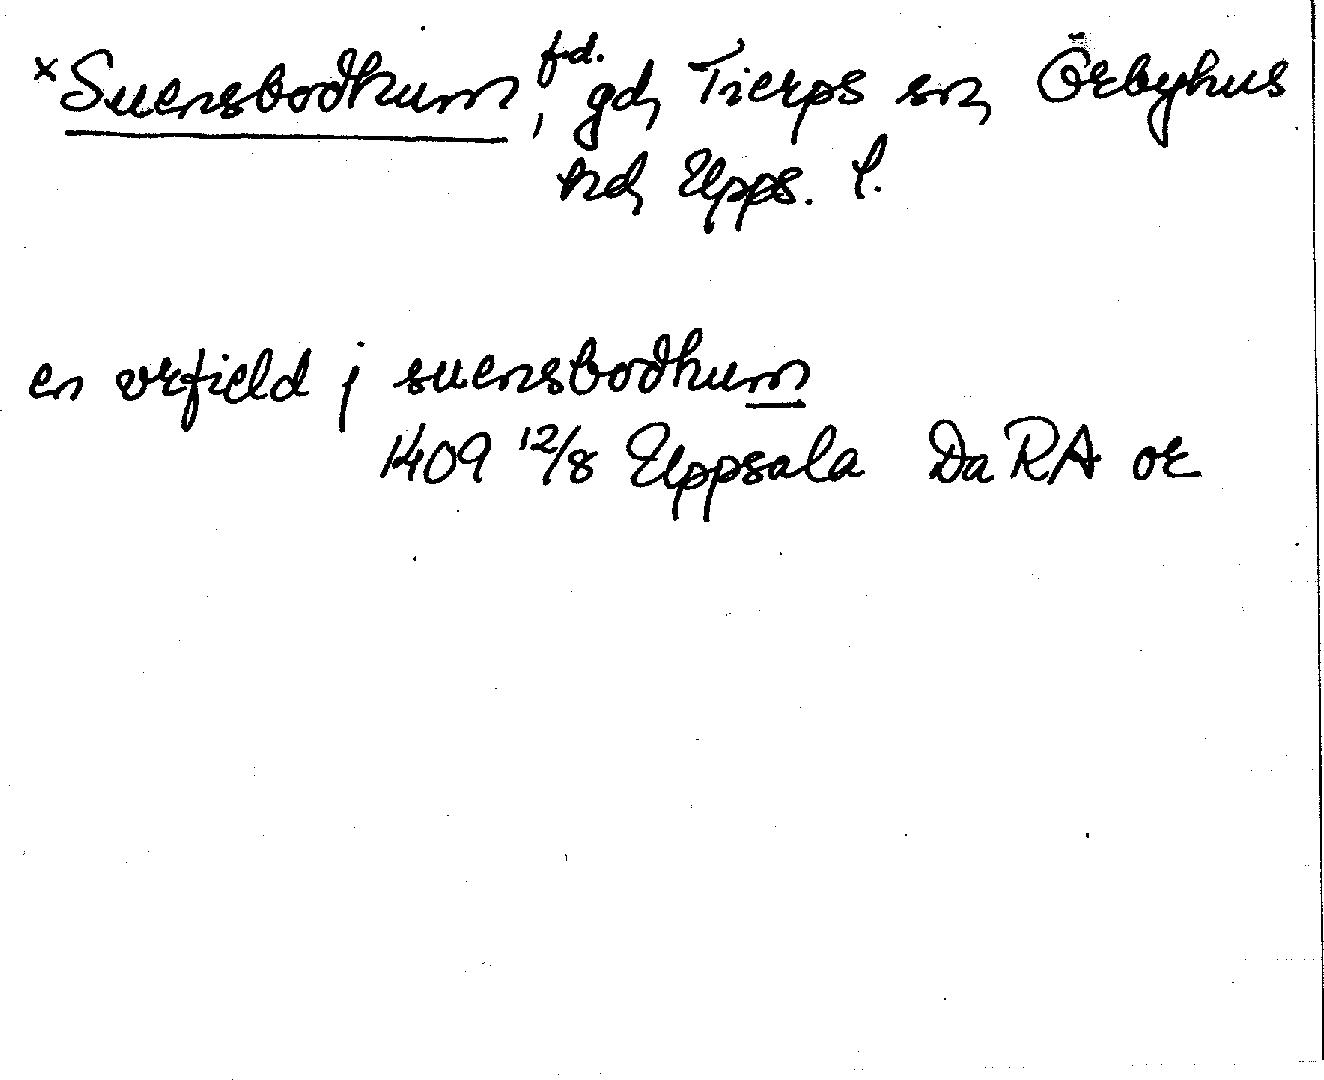 ×Suensbodhum, f.d. gd, Tierps sn, Örbyhus
hd, Upps. l.
en vrfield j suensbodhum
1409 12/8 Uppsala Da RA or